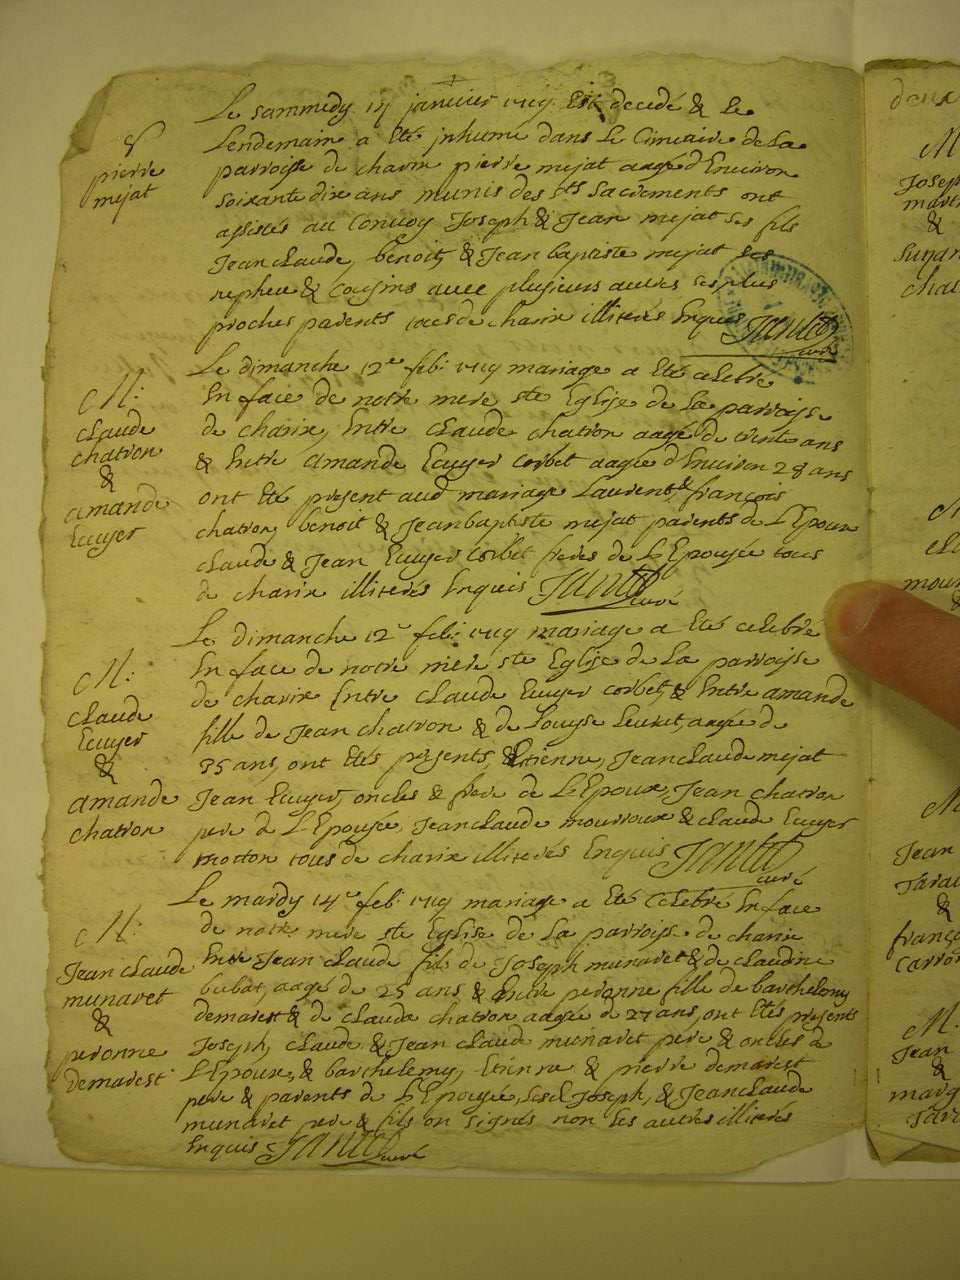 Le sammedy 14 janvier 1719 Est decedé & le
Lendemain a Eté jnhumé dans Le Cimetiere de La
parroisse de charix pierre mejat aagé d'Environ
soixante dix ans munis des Sts Sacrements ont
assistés au Convoy Joseph & Jean mejat ses fils
Jean claude, benoit, & Jean baptiste mejat ses
nepheu & Cousins avec plusieurs autres ses plus
proches parents tous de charix illiterés Enquis
&
pierre
mejat
Le dimanche 12e feb: 1719 mariage a Eté celebré
En face de notre mere ste Eglise de La parroisse
de charix, Entre claude chatron aagé de trente ans
& Entre amande Ecuyer Corbet aagée d'Environ 28 ans
ont Eté present aud mariage Laurent & françois
chatron, benoit & Jean baptiste mejat parents de L'Epoux
claude & Jean Ecuyer Corbet freres de L'Epousée tous
de charix illiterés Enquis
curé
M:
claude
chatron
&
amande
Ecuyer
Le dimanche 12e feb: 1719 mariage a Eté celebré
En face de notre mere ste Eglise de La parroisse
de charix Entre claude Ecuyer Corbet, & Entre amande
fille de Jean chatron & de Louyse aagée de
35 ans, ont Etés présents, Etienne, Jean claude mejat
Jean Ecuyer, oncles & frere de L'Epoux, Jean chatron
pere de L'Epousée, Jean claude mourroux & claude Ecuyer
motton tous de charix illiterés Enquis
curé
M:
claude
Ecuyer
&
amande
chatron
Le mardy 14e feb: 1719 mariage a Eté Celebré En face
de notre mere ste Eglise de La parroisse de charix
Entre Jean claude fils de Joseph munaret & de claudine
bubat, aagé de 25 ans, & Entre peronne fille de barthelemy
demarest & de claude chatron aagée de 27 ans, ont Etés presents
Joseph, claude & Jean claude munaret pere & oncles de
L'Epoux, & barthelemy, Etienne & pierre demarest
pere & parents de L'Epousée, Joseph, & Jean claude
munaret pere & fils on signés non Les autres illiterés
Enquis
curé
M:
Jean claude
munaret
&
peronne
demarest
M
Joseph
&
M
&
Jean
&
M:
Jean
&